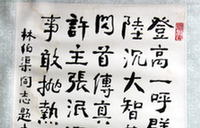 登高一呼群
陸沉大智
问首傳真
許主張泯
事敢挑熱
林伯渠同志題